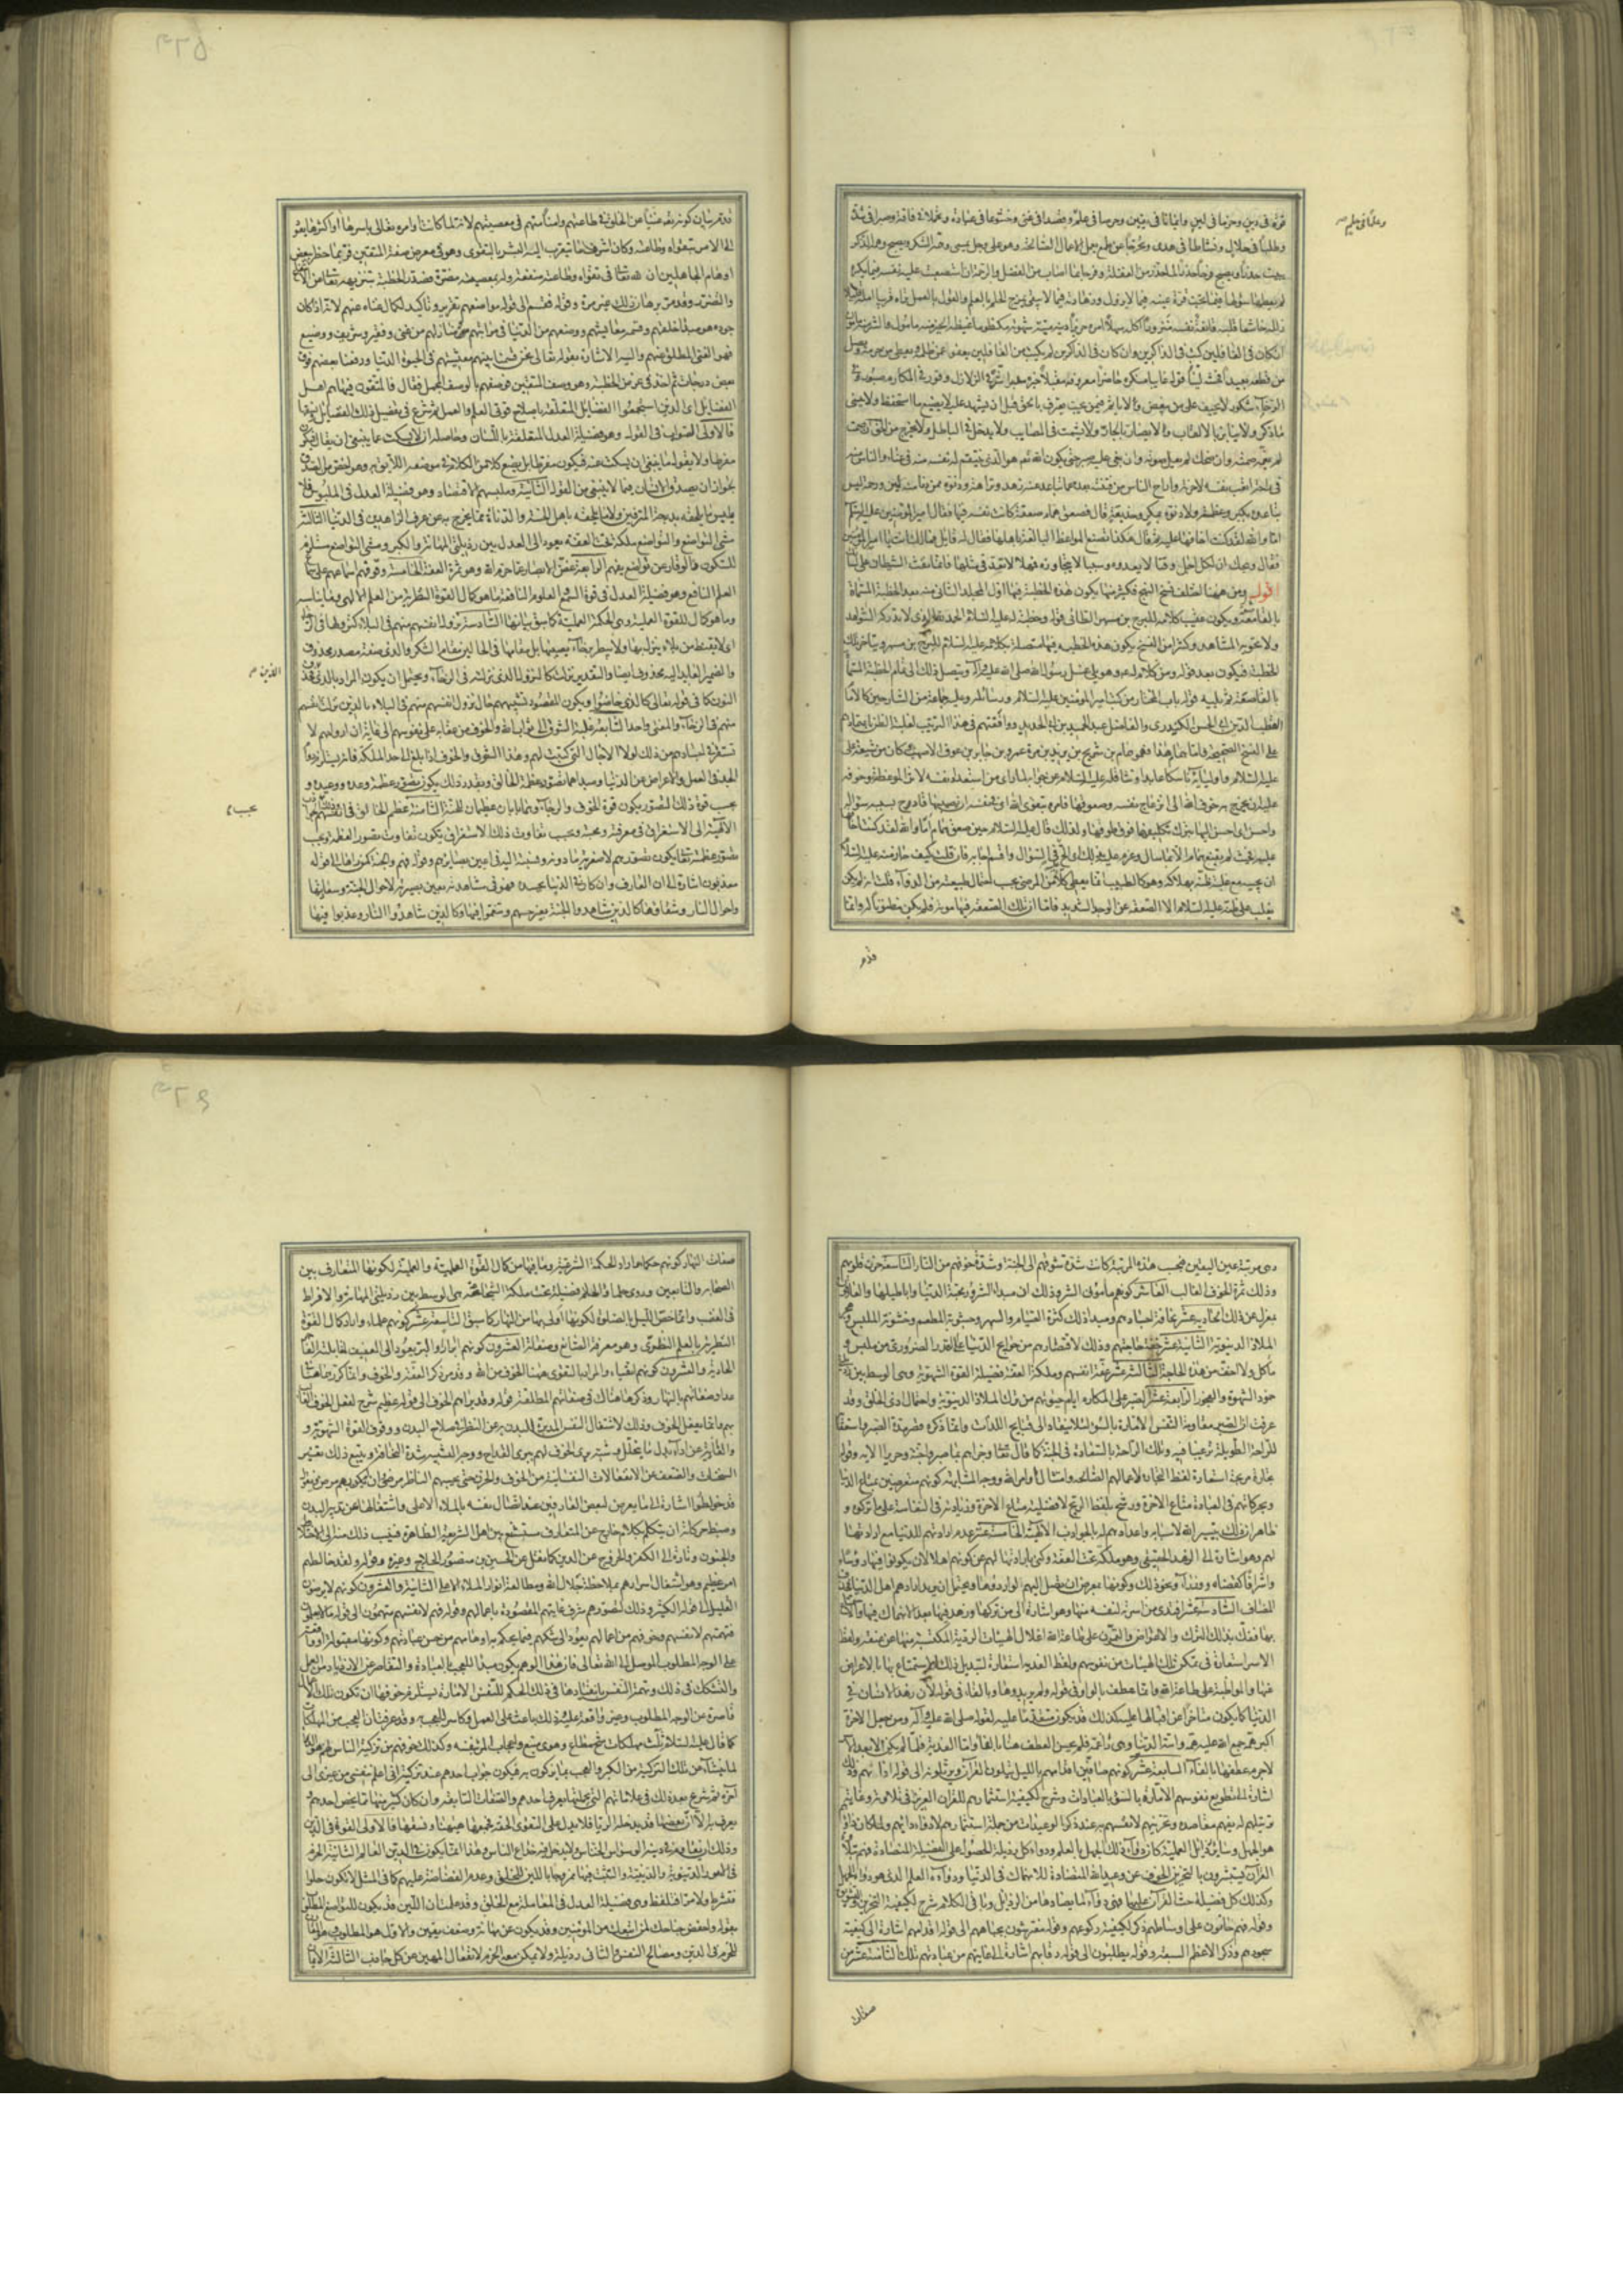 وعلما في حلم
قوة في دين وحزما في لين وايمانا في يقين وحرصا في علم وقصدا في غنى وخشوعا في عبادة وتجملا في فاقة وصبرا في شدة
وطلبا في حلال ونشاطا في هدى وتحرجا عن طمع يعمل الاعمال الصالحة وهو على وجل يمسى وهمه الشكر ويصبح وهمه الذكر
يبيت حذرا ويصبح فرحا حذرا لما حذر من الغفلة وفرحا بما اصاب من الفضل والرحمة ان استصعبت عليه نفسه فيما تكره
لم يعطها سؤلها فيما تحب قرة عينه فيما لا يزول وزهادته فيما لا يبقى يمزج الحلم بالعلم والقول بالعمل تراه قريبا امله
زلله خاشعا قلبه قانعة نفسه منزورا اكله سهلا امره حريزا دينه ميتة شهوته مكظوما غيظه الخير منه مأمول والشر منه مأمون
ان كان في الغافلين كتب في الذاكرين وان كان في الذاكرين لم يكتب من الغافلين يعفو عمن ظلمه ويعطى من حرمه ويصل
من قطعه بعيدا فحشه لينا قوله غايبا منكره حاضرا معروفه مقبلا خيره مدبرا شره في الزلازل وقور وفي المكاره صبور وفي
الرخاء شكور لا يحيف على من يبغض ولا يأثم فيمن يحب يعترف بالحق قبل ان يشهد عليه لا يضيع ما استحفظ ولا ينسى
ما ذكر ولا ينابز بالالقاب ولا يضار بالجار ولا يشمت في المصايب ولا يدخل في الباطل ولا يخرج من الحق ان صمت
لم يغمه صمته وان ضحك لم يعل صوته وان بغى عليه صبر حتى يكون الله تعالى هو الذي ينتقم له نفسه منه في عناء والناس منه
في راحة اتعب نفسه لآخرته واراح الناس من نفسه بعده عمن تباعد عنه زهد ونزاهة ودنوه ممن دنا منه لين ورحمة ليس
تباعده بكبر وعظمة ولا دنوه بمكر وخديعة قال فصعق همام صعقة كانت نفسه فيها فقال امير المؤمنين عليه السلام
اما والله لقد كنت اخافها عليه ثم قال هكذا تصنع المواعظ البالغة باهلها فقال له قايل فما بالك انت يا امير المؤمنين
فقال ويحك ان لكل اجل وقتا لا يعدوه وسببا لا يتجاوزه فمهلا لا تعد في مثلها فانما نفث الشيطان على لسانك
اقول ومن ههنا اختلف نسخ النهج فكثير منها يكون هذه الخطبة فيها اول المجلد الثاني منه بعد الخطبة المسماة
بالقاصعة ويكون عقيب كلامه للبرج بن مسهر الطائي قوله وخطبة له عليه السلام الحمد لله الذي لا تدركه الشواهد
ولا تحويه المشاهد وكثير من النسخ يكون هذه الخطبة فيها متصلة بكلامه عليه السلام للبرج بن مسهر ويتأخر تلك
الخطبة فيكون بعد قوله ومن كلام له وهو يلي غسل رسول الله صلى الله عليه وآله ويتصل ذلك الى تمام الخطبة المسماة
بالقاصعة ثم يليه قوله باب المختار من كتب امير المؤمنين عليه السلام ورسائله وعليه جماعة من الشارحين كالامام
القطب الدين ابي الحسن الكيدري والفاضل عبد الحميد بن ابي الحديد ووافقتهم في هذا الترتيب لغلبة الظن باعتمادهم
على النسخ الصحيحة فاما همام هذا فهو همام بن شريح بن يزيد بن مرة عمرو بن جابر بن عوف الاصهب كان من شيعة علي
عليه السلام واوليائه ناسكا عابدا وتثاقله عليه السلام عن جوابه لما رأى من استعداد نفسه لاثر الموعظة وخوفه
عليه ان يخرج به خوف الله الى انزعاج نفسه وصعوقها فامره بتقوى الله اى في نفسه ان يصيبها فادح بسبب سؤاله
واحسن اى احسن اليها بترك تكليفها فوق طوقها ولذلك قال عليه السلام حين صعق همام اما والله لقد كنت اخافها
عليه فحيث لم يقنع همام الا بما سأل وعزم عليه في ذلك والح في السؤال اجابه فان قلت كيف جاز منه عليه السلام
ان يجيبه مع غلبة ظنه بهلاكه وهو كالطبيب انما يعطى كلا من المرضى بحسب احتمال طبيعته من الدواء قلت انه لم يكن
يغلب على ظنه عليه السلام الا الصعقة عن الوجد الشديد فاما ان تلك الصعقة فيها موته فلم يكن مظنونا له وانما
قدم
قدم بيان كونه تعالى غنيا عن الخلق في طاعتهم وامنا منهم في معصيتهم لانه لما كانت اوامره تعالى باسرها او اكثرها يعود
الى الامر بتقواه وطاعته وكان اشرف ما يتقرب اليه البشر بالتقوى وهو في معرض صفة المتقين فربما خطر ببعض
اوهام الجاهلين ان لله تعالى في تقواه وطاعته منفعة وله بمعصيته مضرة فصدر الخطبة بتنزيهه تعالى عن الانتفاع
والتضرر وقد مر برهان ذلك غير مرة وقوله فقسم الى قوله مواضعهم تقرير وتأكيد لكمال غناه عنهم لانه اذا كان
جوده هو مبدأ خلقهم وقسمة معايشهم ووضعهم من الدنيا في مراتبهم ومنازلهم من غنى وفقير وشريف ووضيع
فهو الغنى المطلق عنهم واليه الاشارة بقوله تعالى نحن قسمنا بينهم معيشتهم في الحيوة الدنيا ورفعنا بعضهم فوق
بعض درجات ثم اخذ في غرض الخطبة وهو وصف المتقين فوصفهم بالوصف المجمل فقال فالمتقون فيها هم اهل
الفضايل اى الذين استجمعوا الفضايل المتعلقة باصلاح قوتي العلم والعمل ثم شرع في تفصيل تلك الفضايل
فالاولى الصواب في القول وهو فضيلة العدل المتعلقة باللسان وحاصله ان لا يسكت عما ينبغي ان يقال فيكون
مفرطا ولا يقول ما ينبغي ان يسكت عنه فيكون مفرطا بل يضع كلا من الكلام في موضعه اللايق به وهو اخص من الصدق
لجواز ان يصدق الانسان فيما لا ينبغي من القول الثانية وملبسهم الاقتصاد وهو فضيلة العدل في الملبوس فلا
يلبس ما يلحقه بدرجة المترفين ولا ما يلحقه باهل الخسة والدناءة مما يخرج به عن عرف الزاهدين في الدنيا الثالثة
مشى التواضع والتواضع ملكة تحت العفة يعود الى العدل بين رذيلتي المهانة والكبر ومشى التواضع مستلزم
للسكون والوقار عن تواضع نفوسهم الرابعة غض الابصار عما حرم الله وهو ثمرة العفة الخامسة وقوفهم اسماعهم على سماع
العلم النافع وهو فضيلة العدل في قوة السمع والعلوم النافعة ما هو كمال القوة النظرية من العلم الالهي وما يناسبه
وما هو كمال للقوة العملية وهي الحكمة العملية كما سبق بيانها السادسة نزول انفسهم منهم في البلاء كنزولها في الرخاء
اى لا يقنط من بلاء ينزل بها ولا يبطر برخاء يصيبها بل مقامها في الحالين مقام الشكر والذي صفة مصدر محذوف
والضمير العايد اليه محذوف ايضا والتقدير نزلت كالنزول الذي نزلته في الرخاء ويحتمل ان يكون المراد بالذي
الذين
النون كما في قوله تعالى كالذي خاضوا ويكون المقصود تشبيههم حال نزول انفسهم منهم في البلاء بالذين نزلت انفسهم
منهم في الرخاء والمعنى واحد السابعة غلبة الشوق الى ثواب الله والخوف من عقابه على نفوسهم الى غاية ان ارواحهم لا
تستقر في اجسادهم من ذلك لولا الاجال التي كتبت لهم وهذا الشوق والخوف اذا بلغ الى حد الملكة فانه يستلزم
الجد في العمل والاعراض عن الدنيا ومبدأهما تصور عظمة الخالق وبقدر ذلك يكون تصور عظمة وعده ووعيده و
بحسب
بحسب قوة ذلك التصور يكون قوة الخوف والرجاء وهما بابان عظيمان للجنة الثامنة عظم الخالق في انفسهم
الالهية الى الاستغراق في معرفته ومحبته وبحسب تفاوت ذلك الاستغراق يكون تفاوت تصور العظمة وبحسب
تصور عظمته تعالى يكون تصورهم لاصغرية ما دونه ونسبته اليه في اعين بصايرهم وقوله فهم والجنة كمن رآها الى قوله
معذبون اشارة الى ان العارف وان كان في الدنيا بجسده فهو في مشاهدته بعين بصيرته لاحوال الجنة وسعادتها
واحوال النار وشقاوتها كالذين شاهدوا الجنة بعين حسهم وتنعموا فيها وكالذين شاهدوا النار وعذبوا فيها
وهي مرتبة عين اليقين فبحسب هذه المرتبة كانت شدة شوقهم الى الجنة وشدة خوفهم من النار التاسعة حزن قلوبهم
وذلك ثمرة الخوف الغالب العاشرة كونهم مأموني الشرور وذلك ان مبدأ الشرور محبة الدنيا واباطيلها والعارفون
بمعزل عن ذلك الحادية عشر نحافة اجسادهم ومبدأ ذلك كثرة الصيام والسهر وجشوبة المطعم وخشونة الملبس وهجر
الملاذ الدنيوية الثانية عشر خفة حاجاتهم وذلك لاقتصارهم من حوايج الدنيا على القدر الضرورى من ملبس و
مأكل ولا اخف من هذه الحاجة الثالثة عشر عفة انفسهم وملكة العفة فضيلة القوة الشهوية وهي الوسط بين رذيلتي
خمود الشهوة والفجور الرابعة عشر الصبر على المكاره ايام حيوتهم من ترك الملاذ الدنيوية واحتمال اذى الخلق وقد
عرفت ان الصبر مقاومة النفس الامارة بالسوء لئلا ينقاد الى قبايح اللذات وانما ذكر قصر مدة الصبر واستعقابه
للراحة الطويلة ترغيبا فيه وتلك الراحة بالسعادة في الجنة كما قال تعالى وجزاهم بما صبروا جنة وحريرا الاية وقوله
تجارة مربحة استعارة لفظ التجارة لاعمالهم الصالحة وامتثال اوامر الله ووجه المشابهة كونهم متعوضين بمتاع الدنيا
وبحركاتهم في العبادة متاع الاخرة ورشح بلفظ الربح لافضلية متاع الاخرة وزيادته في النفاسة على ما تركوه و
ظاهر ان ذلك بتيسير الله لاسبابه واعدادهم له بالجواذب الالهية الخامسة عشر عدم ارادتهم للدنيا مع ارادتها
لهم وهو اشارة الى الزهد الحقيقي وهو ملكة تحت العفة وكنى بارادتها لهم عن كونهم اهلا لان يكونوا فيها رؤساء
واشرافا كقضاة ووزراء ونحو ذلك وكونها بمعرض ان تصل اليهم لو ارادوها ويحتمل ان يريد ارادهم اهل الدنيا فحذف
المضاف السادسة عشر افتدى من اسرته لنفسه منها وهو اشارة الى من تركها وزهد فيها بعد الانهماك فيها والاستمتاع
بها ففك بذلك الترك والاعراض والتمرن على طاعة الله اغلال الهيئات الردية المكتسبة منها عن عنقه ولفظ
الاسر استعارة في تمكن تلك الهيئات من نفوسهم ولفظ الفدية استعارة لتبديل ذلك الاستمتاع بها بالاعراض
عنها والمواظبة على طاعة الله وانما عطف بالواو في قوله ولم يريدوها وبالفاء في قوله لان زهد الانسان في
الدنيا كما يكون متأخرا عن اقبالها عليه كذلك قد يكون متقدما عليه لقوله صلى الله عليه وآله ومن جعل الاخرة
اكبر همه جمع الله عليه همه واتته الدنيا وهي راغمة فلم يحسن العطف هنا بالفاء واما الفدية فلما لم يكن الا بعد الاسر
لا جرم عطفها بالفاء السابعة عشر كونهم صافين اقدامهم بالليل يتلون القرآن ويرتلونه الى قوله اذانهم وذلك
اشارة الى تطويع نفوسهم الامارة بالسوء بالعبادات وشرح لكيفية استثارهم للقران العزيز في تلاوته وغاية
ترتيلهم له بفهم مقاصده وتحزينهم لانفسهم به عند ذكر الوعيدات من جملة استثارهم لادواء دائهم ولما كان داؤهم
هو الجهل وساير رذايل العملية كان دواء ذلك الجهل بالعلم ودواء كل رذيلة الحصول على الفضيلة المضادة فهم بتلاوة
القرآن يستثيرون بالتحزين الخوف عن وعيد الله المضادة للانهماك في الدنيا ودواءه العلم الذي هو دواء الجهل
وكذلك كل فضيلة حث القرآن عليها فهي دواء لما يضادها من الرذايل وباقي الكلام شرح لكيفية التحزين والتشويق
وقوله فهم حانون على اوساطهم ذكر لكيفية ركوعهم وقوله مفترشون لجباههم الى قوله اقدامهم اشارة الى كيفية
سجودهم وذكر الاعظم السبعة وقوله يطلبون الى قوله رقابهم اشارة الى غايتهم من عبادتهم تلك الثامنة عشر من
صفات
صفات النهار كونهم حكماء اراد الحكمة الشرعية وما فيها من كمال القوة العلمية والعملية لكونها المتعارف بين
الصحابة والتابعين وروى حلماء والحلم فضيلة تحت ملكة الشجاعة هي الوسط بين رذيلتي المهانة والافراط
في الغضب وانما خص الليل بالصلوة لكونها اولى بها من النهار كما سبق التاسعة عشر كونهم علماء واراد كمال القوة
النظرية بالعلم النظرى وهو معرفة الصانع وصفاته العشرون كونهم ابرارا والبر يعود الى العفيف لمقابلته الفاجر
الحادية والعشرون كونهم اتقياء والمراد بالتقوى ههنا الخوف من الله وقد مر ذكر العفة والخوف وانما كررهما هنا
في عداد صفاتهم بالنهار وذكرهما هناك في صفاتهم المطلقة قوله وقد براهم الخوف الى قوله عظيم شرح لفعل الخوف الغالب
بهم وانما يفعل الخوف وذلك لاشتغال النفس المدبرة للبدن به عن النظر في صلاح البدن ووقوف القوة الشهوية و
والغاذية عن اداء بدل ما يتحلل وشبه برى الخوف لهم ببرى القداح ووجه التشبيه شدة النحافة ويتبع ذلك تغير
السحنات والضعف عن الانفعالات النفسانية من الخوف والحزن حتى يحسبهم الناظر مرضى وان لم يكن بهم مرض ويقول
قد خولطوا اشارة الى ما يعرض لبعض العارفين عند اتصال نفسه بالملأ الاعلى واشتغالها عن تدبير البدن
وضبط حركاته ان يتكلم بكلام خارج عن المتعارف مستبشع بين اهل الشريعة الظاهرة فينسب ذلك منه الى الاختلاط
والجنون وتارة الى الكفر والخروج عن الدين كما نقل عن الحسين بن منصور الحلاج وغيره وقوله ولقد خالطهم
امر عظيم وهو اشتغال اسرارهم بملاحظة جلال الله ومطالعة انوار الملأ الاعلى الثانية والعشرون كونهم لا يرضون
القليل الى قوله الكثير وذلك لتصورهم شرف غايتهم المقصودة باعمالهم وقوله فهم لانفسهم متهمون الى قوله ما لا يعلمون
فتهمتهم لانفسهم وخوفهم من اعمالهم يعود الى شكهم فيما يحكم به اوهامهم من حسن عبادتهم وكونها مقبولة او واقعة
على الوجه المطلوب الموصل الى الله تعالى فان هذا الوهم يكون مبدأ للعجب بالعبادة والتقاصر عن الازدياد من العمل
والتشكك في ذلك وتهمة النفس بانقيادها في ذلك الحكم للنفس الامارة يستلزم خوفها ان تكون تلك الاعمال
قاصرة عن الوجه المطلوب وغير واقعة عليه وذلك باعث على العمل وكاسر للعجب وقد عرفت ان العجب من المهلكات
كما قال عليه السلام ثلاث مهلكات شح مطاع وهوى متبع واعجاب المرء بنفسه وكذلك خوفهم من تزكية الناس لهم هو الدواء
لما ينشأ عن تلك التزكية من الكبر والعجب بما يزكون به فيكون جواب احدهم عند تزكيته انى اعلم بنفسي من غيرى الى
آخره ثم شرع بعد ذلك في علاماتهم التي بجملتها يعرف احدهم والصفات السابقة وان كان كثير منها مما يخص احدهم و
يعرف به الا ان بعضها قد يدخله الريا فلا يدل على التقوى الحقة فجمعها ههنا ونسقها فالاولى القوة في الدين
وذلك ان يقاوم في دينه الوسواس الخناس ولا يدخل فيه خداع الناس وهذا انما يكون في الدين العالم الثانية الحزم
في الامور الدنيوية والدينية والتثبت فيها ممزوجا باللين للخلق وعدم الفظاظة عليهم كما في المثل لا تكن حلوا
فتسترط ولا مرا فتلفظ وهي فضيلة العدل في المعاملة مع الخلق وقد علمت ان اللين قد يكون للتواضع المطلوب
بقوله واخفض جناحك لمن اتبعك من المؤمنين وقد يكون عن مهانة وضعف يقين والاول هو المطلوب وهو المقارن
للحزم في الدين ومصالح النفس والثاني رذيلة ولا يمكن معه الحزم لانفعال المهين عن كل جاذب الثالثة الايمان